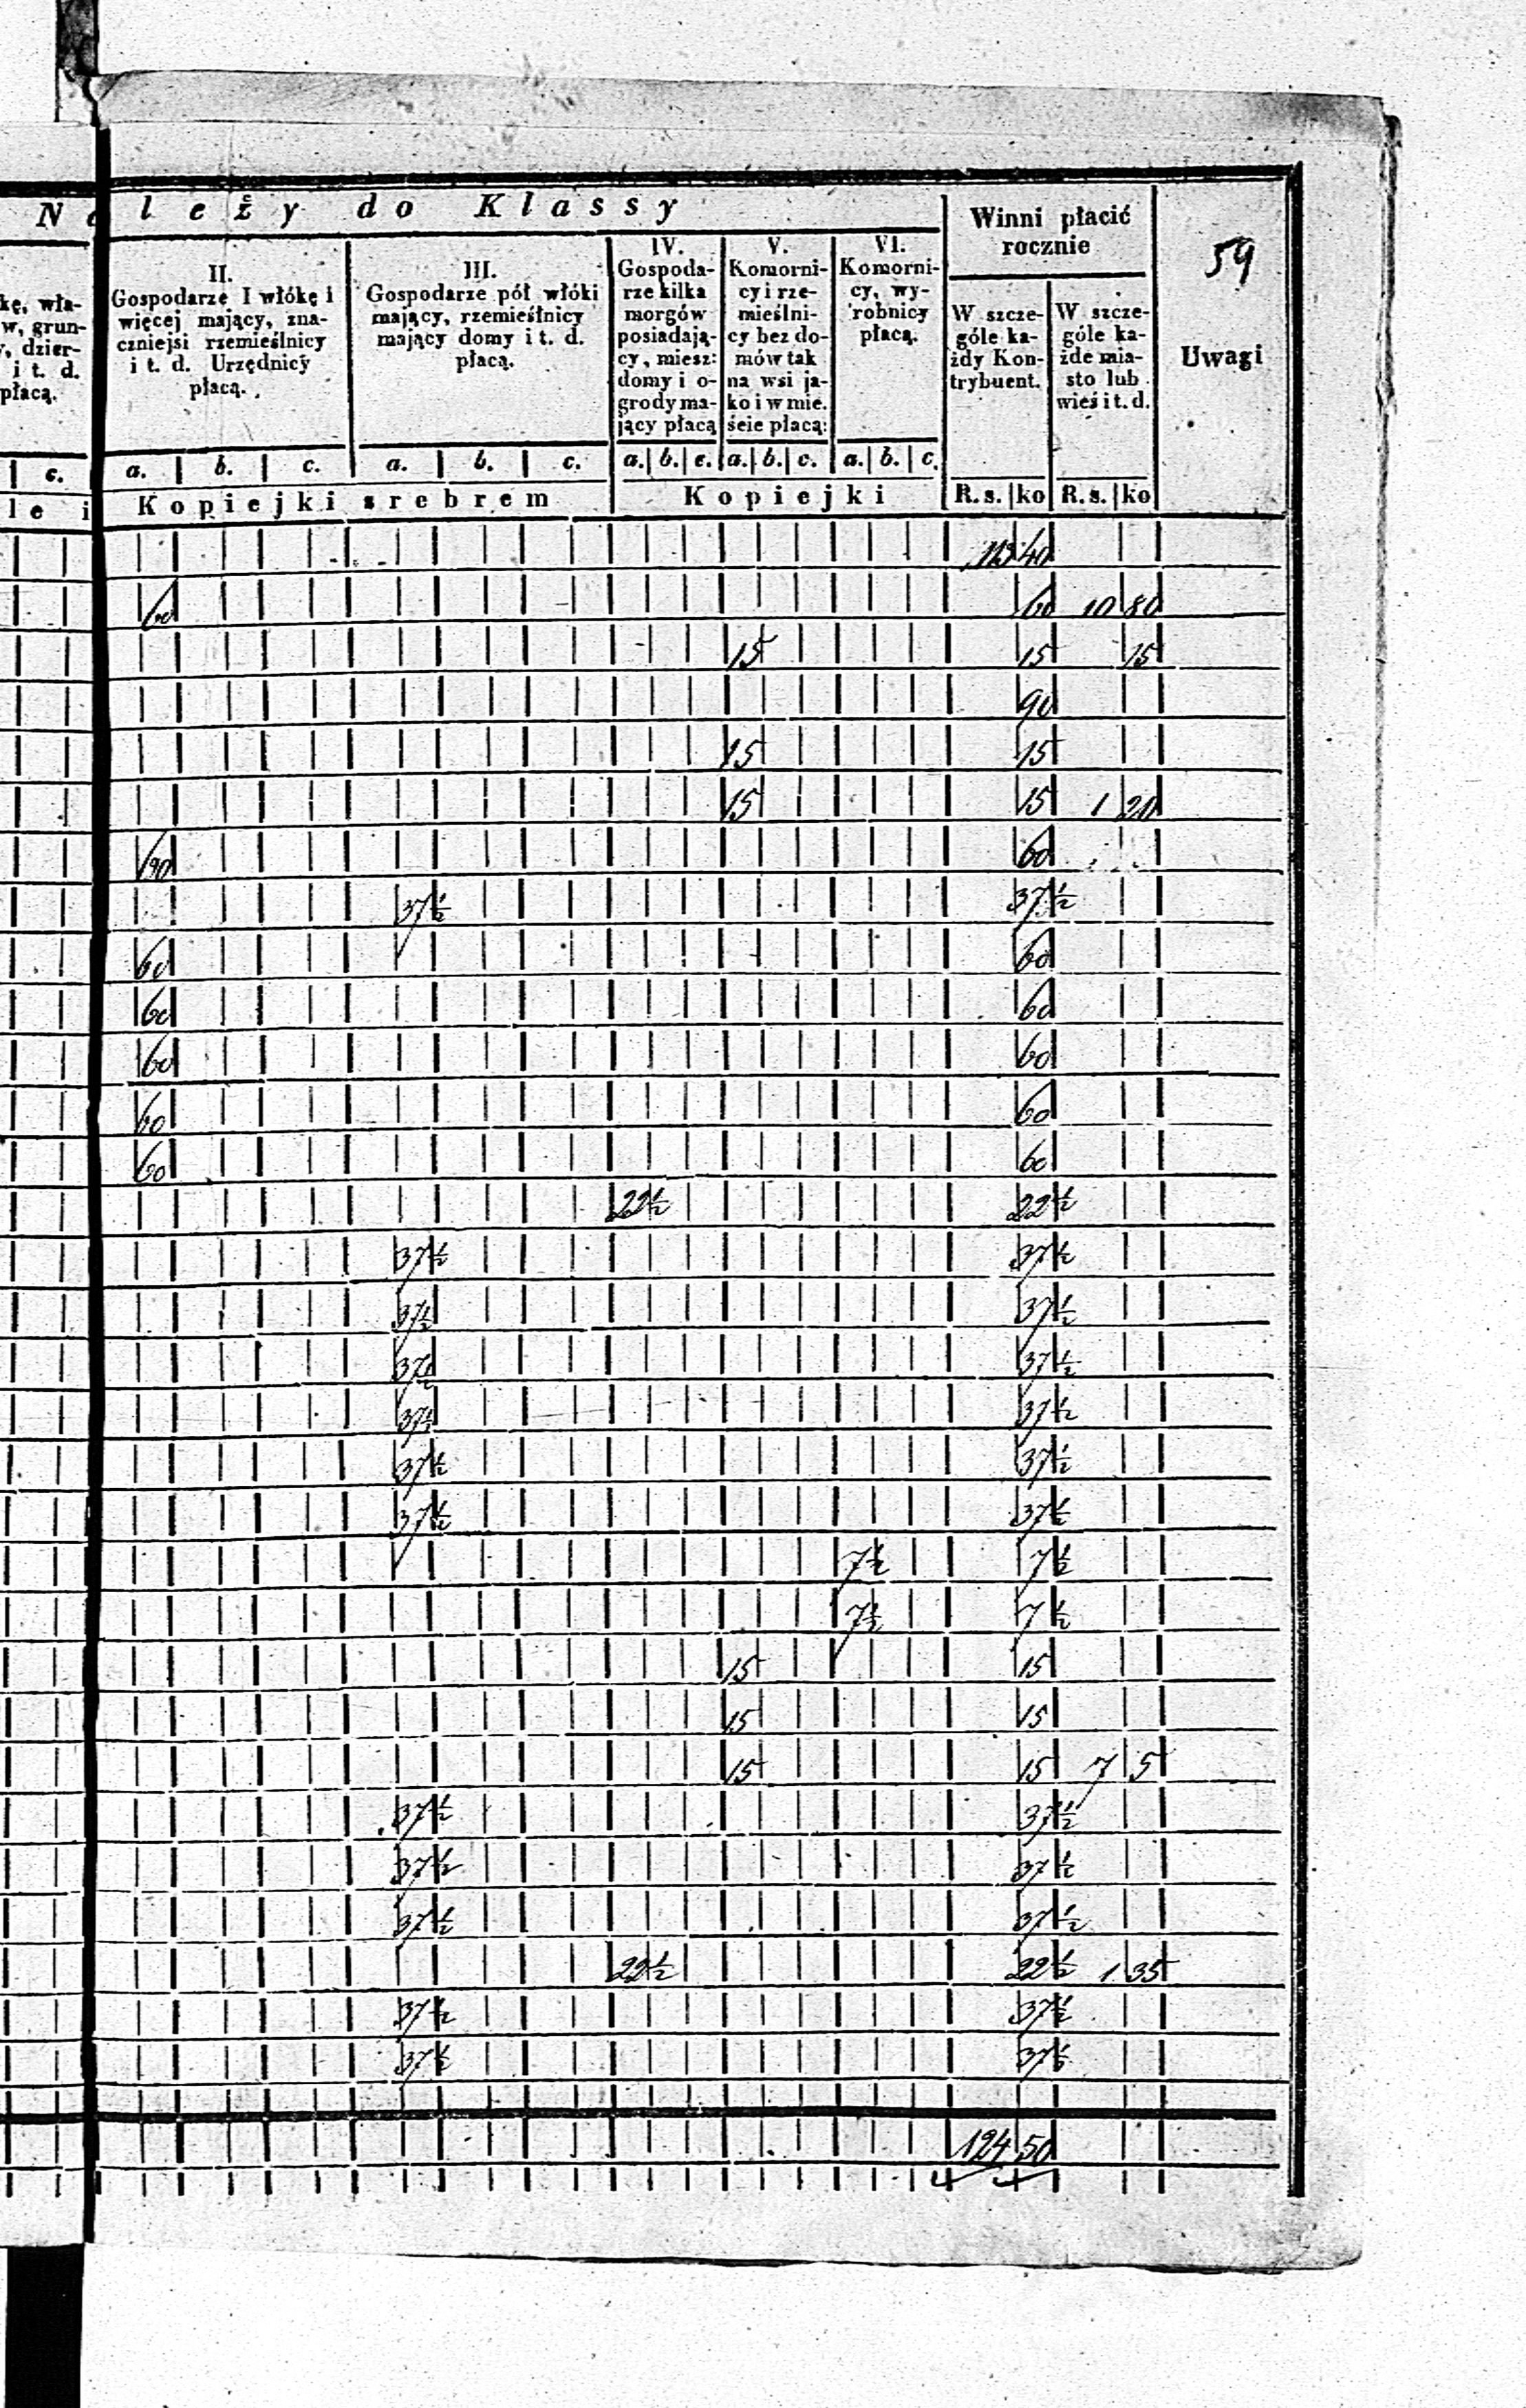 Należy do Klassy
Winni płacić
rocznie
59
kę, wła-
w, grun-
y, dzier-
i t. d.
płacą.
II.
Gospodarze I włókę i
więcej mający, zna-
czniejsi rzemieślnicy
i t. d. Urzędnicy
płacą.
III.
Gospodarze pół włóki
mający, rzemieślnicy
mający domy i t. d.
płacą.
IV.
Gospoda-
rze kilka
morgów
posiadają-
cy, miesz:
domy i o-
grody ma-
jący płacą
V.
Komorni-
cy i rze-
mieślni-
cy bez do-
mów tak
na wsi ja-
ko i w mie.
ście płacą:
VI.
Komorni-
cy, wy-
robnicy
płacą.
W szcze-
góle ka-
żdy Kon-
trybuent.
W szcze-
góle ka-
żde mia-
sto lub
wieś i t. d.
Uwagi
c. a. b. c. a. b. c. a. b. c. a. b. c. a. b. c.
le i Kopiejki srebrem Kopiejki R.s. ko R.s. ko
113 40
60 60 10 80
15 15 15
90
15 15
15 15 1 20
90 60
37½ 37½
60 60
60 60
60 60
60 60
60 60
22½ 22½
37½ 37½
37½ 37½
37½ 37½
37½ 37½
37½ 37½
37½ 37½
7½ 7½
7½ 7½
15 15
15 15
15 15 7 5
37½ 37½
37½ 37½
37½ 37½
22½ 22½ 1 35
37½ 37½
37½ 37½
124 50